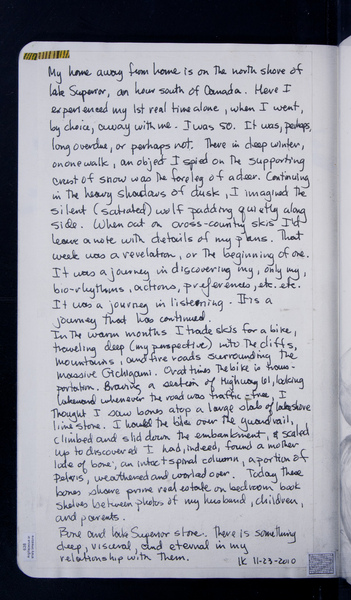 My home away from home is on the north shore of
Lake Superior, an hour south of Canada. Here I
experienced my 1st real time alone, when I went,
by choice, away with me. I was 50. It was, perhaps,
long overdue, or perhaps not. There in deep winter,
on one walk, an object I spied on the supporting
crust of snow was the foreleg of a deer. Continuing
in the heavy shadows of dusk, I imagined the
silent (satiated) wolf padding quietly along
side. When out on cross-country skis I'd
leave a note with details of my plans. That
week was a revelation, or the beginning of one.
It was a journey in discovering my, only my,
bio-rhythms, actions, preferences, etc. etc.
It was a journey in listening. It is a
journey that has continued.
In the warm months I trade skis for a bike,
traveling deep (my perspective) into the cliffs,
mountains, and fire roads surrounding the
massive Gichigami. Other times the bike is trans-
portation. Braving a section of Highway 61, looking
lakeward whenever the road was traffic-free, I
thought I saw bones atop a large slab of lakeshore
lime stone. I the bike over the guardrail,
climbed and slid down the embankment, & scaled
up to discover I had, indeed, found a mother-
lode of bone; an intact spinal column, a portion of
pelvis, weathered and worked over. Today these
bones share prime real estate on bedroom book
shelves between photos of my husband, children,
and parents.
Bone and Lake Superior stone. There is something
deep, visceral, and eternal in my
relationship with them.
11-23-2010